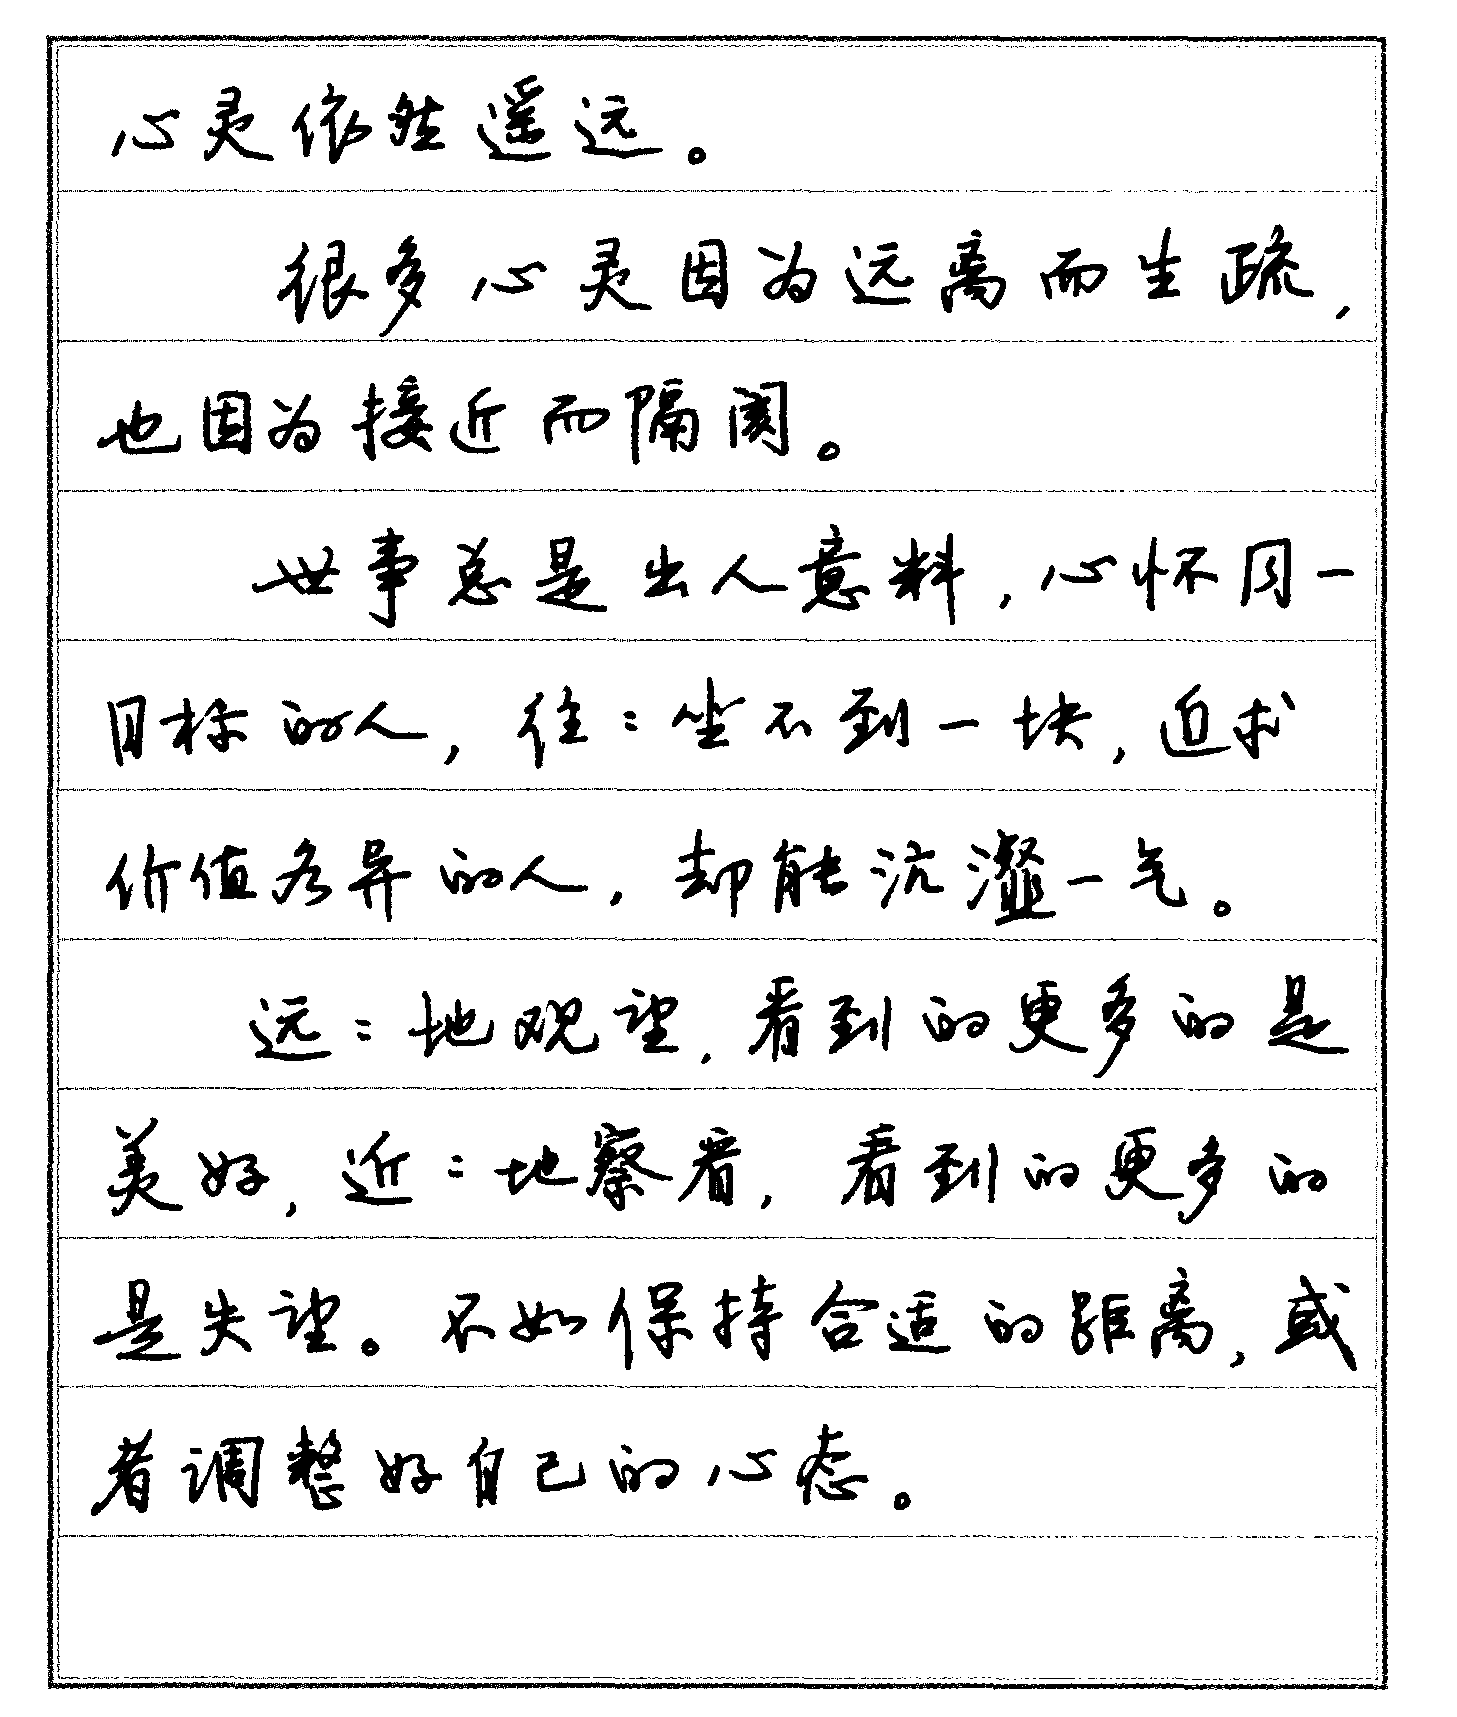 心灵依然遥远。
很多心灵因为远离而生疏，
也因为接近而隔阂。
世事总是出人意料，心怀同一
目标的人，往：坐不到一块，追求
价值各异的人，却能沆瀣一气。
远：地观望，看到的更多的是
美好，近：地察看，看到的更多的
是失望。不如保持合适的距离，或
者调整好自己的心态。